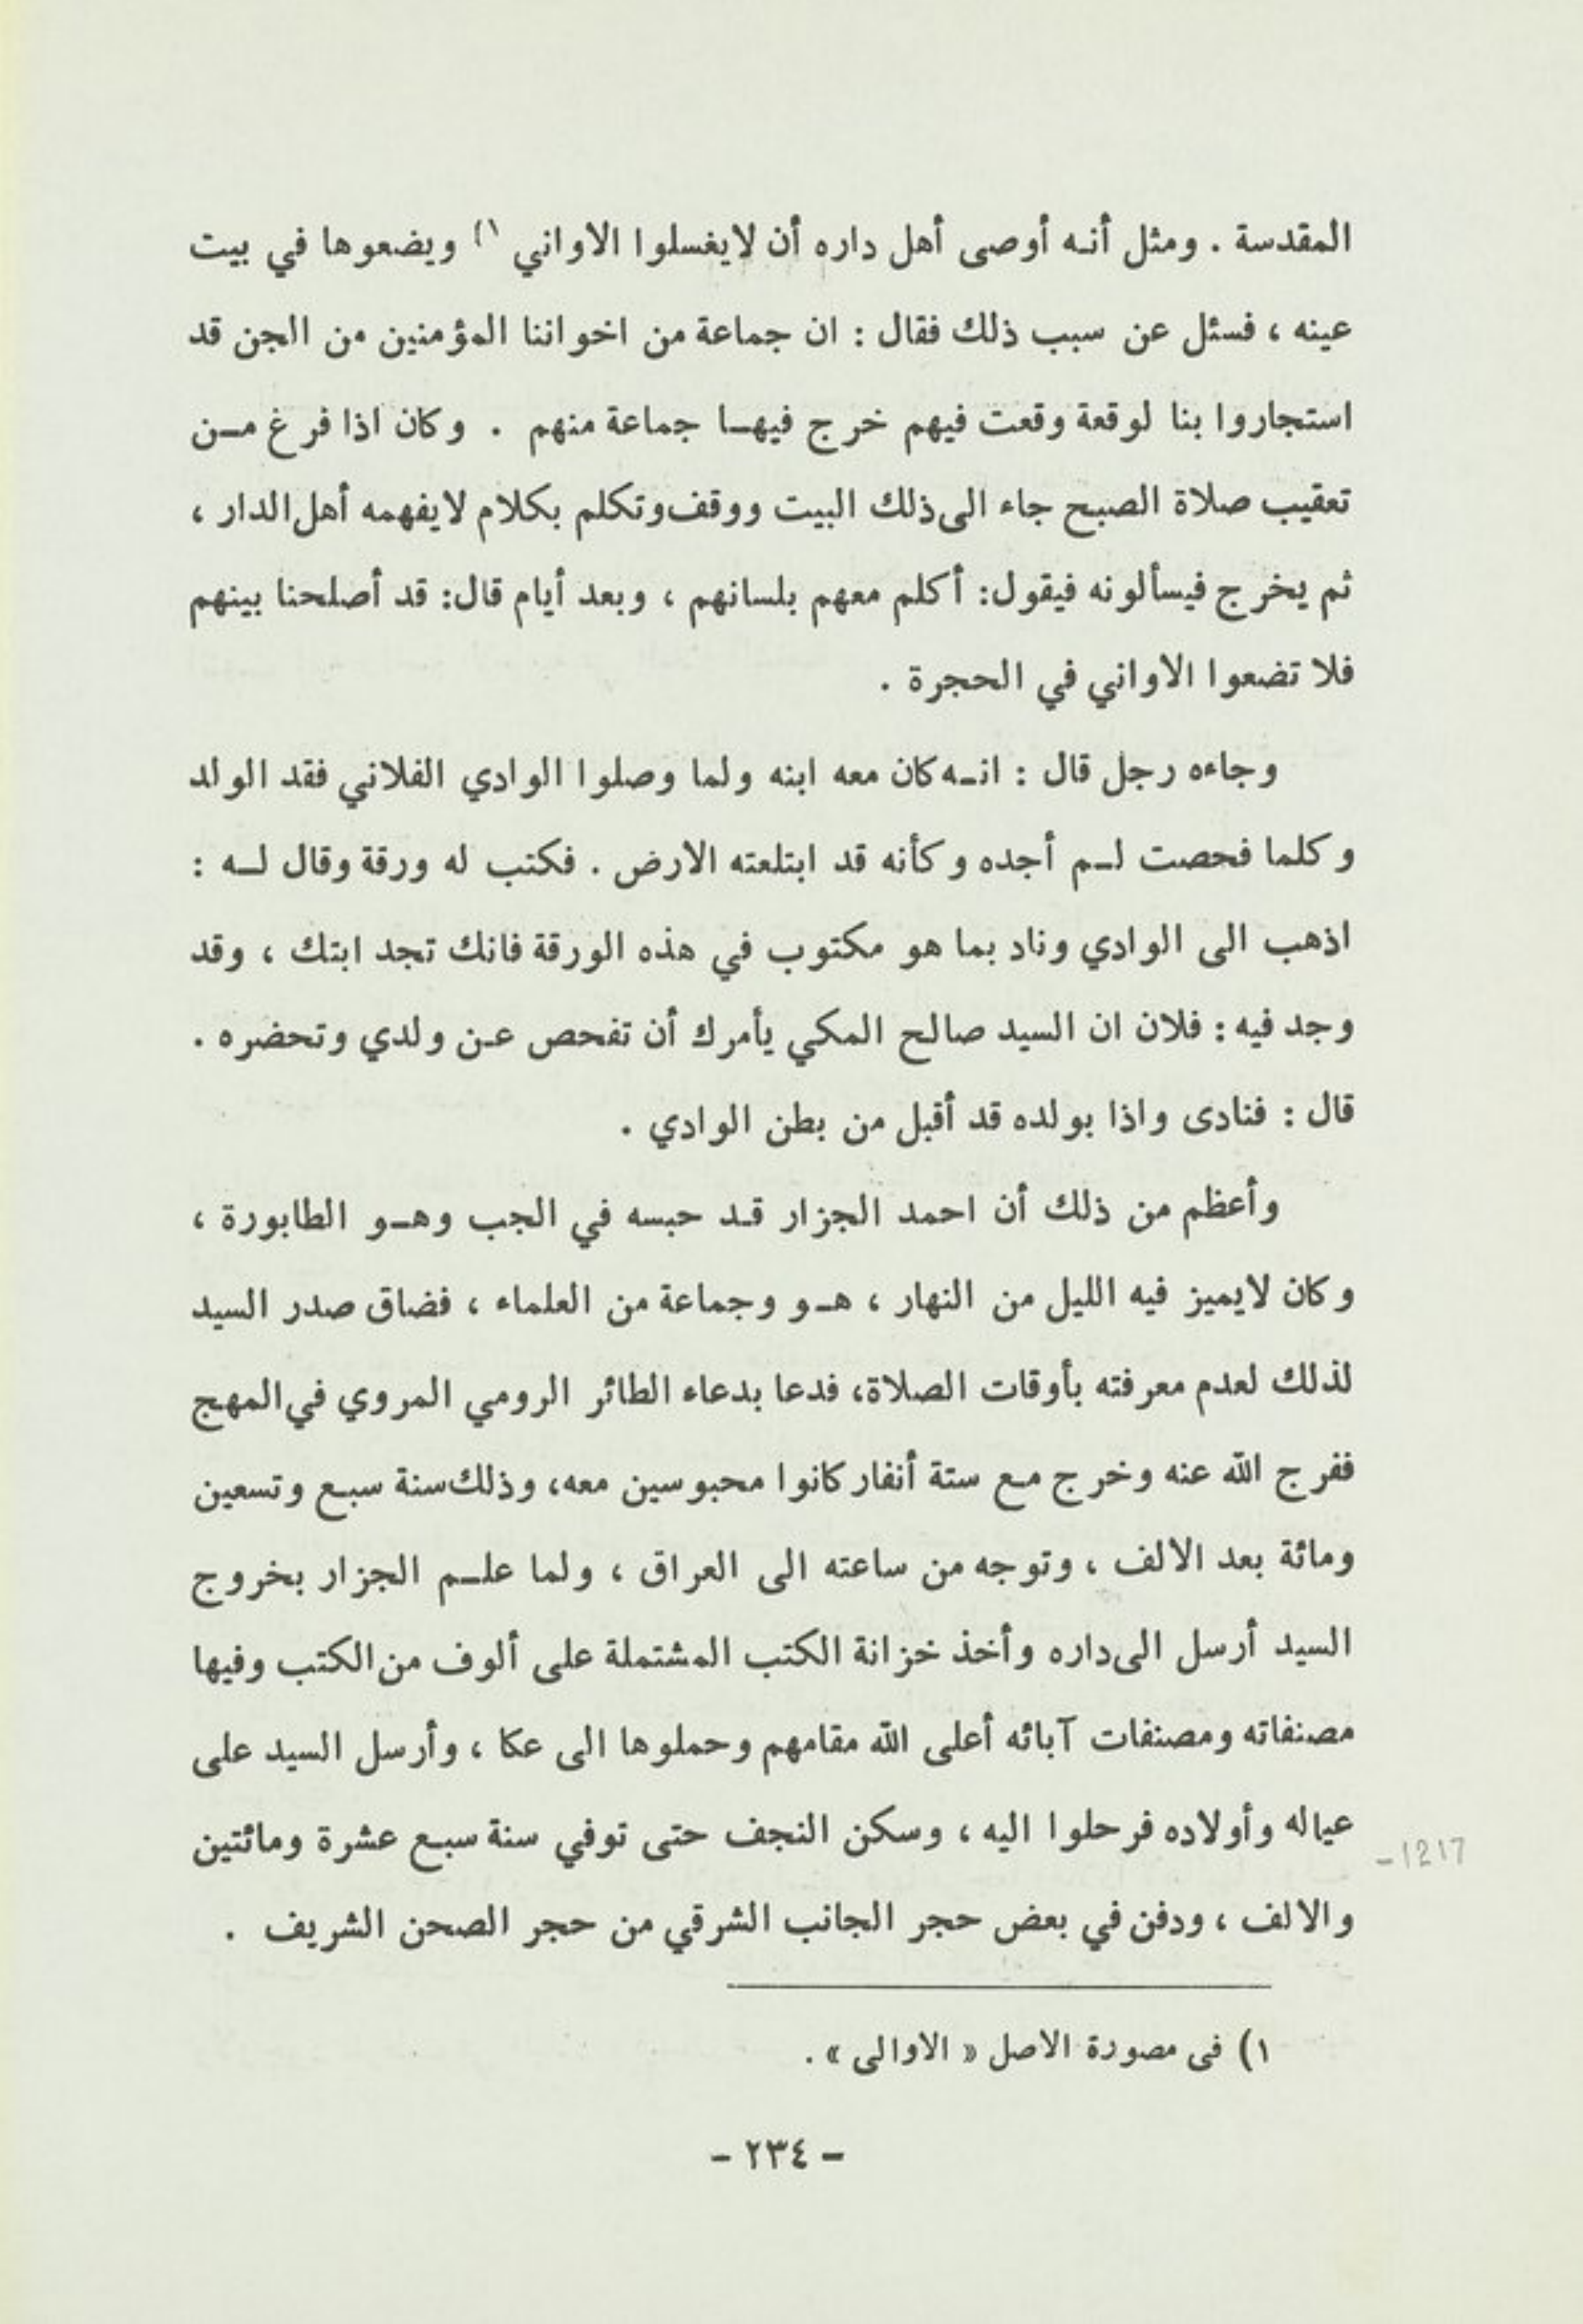 المقدسة . ومثل أنـه أوصى أهل داره أن لايغسلوا الاواني ١) ويضعوها في بيت
عينه ، فسئل عن سبب ذلك فقال : ان جماعة من اخواننا المؤمنين من الجن قد
استجاروا بنا لوقعة وقعت فيهم خرج فيهـا جماعة منهم . وكان اذا فرغ مـن
تعقيب صلاة الصبح جاء الى ذلك البيت ووقف وتكلم بكلام لايفهمه أهل الدار ،
ثم يخرج فيسألونه فيقول: أكلم معهم بلسانهم ، وبعد أيام قال: قد أصلحنا بينهم
فلا تضعوا الاواني في الحجرة .
وجاءه رجل قال : انـه كان معه ابنه ولما وصلوا الوادي الفلاني فقد الولد
وكلما فحصت لـم أجده وكأنه قد ابتلعته الارض . فكتب له ورقة وقال لـه :
اذهب الى الوادي وناد بما هو مكتوب في هذه الورقة فانك تجد ابتك ، وقد
وجد فيه : فلان ان السيد صالح المكي يأمرك أن تفحص عـن ولدي وتحضره .
قال : فنادى واذا بولده قد أقبل من بطن الوادي .
وأعظم من ذلك أن احمد الجزار قـد حبسه في الجب وهـو الطابورة ،
وكان لايميز فيه الليل من النهار ، هـو وجماعة من العلماء ، فضاق صدر السيد
لذلك لعدم معرفته بأوقات الصلاة، فدعا بدعاء الطائر الرومي المروي في المهج
ففرج الله عنه وخرج مـع ستة أنفار كانوا محبوسين معه، وذلك سنة سبـع وتسعين
ومائة بعد الالف ، وتوجه من ساعته الى العراق ، ولما علـم الجزار بخروج
السيد أرسل الى داره وأخذ خزانة الكتب المشتملة على ألوف من الكتب وفيها
مصنفاته ومصنفات آبائه أعلى الله مقامهم وحملوها الى عكا ، وأرسل السيد على
عياله وأولاده فرحلوا اليه ، وسكن النجف حتى توفي سنة سبـع عشرة ومائتين
-1217
والالف ، ودفن في بعض حجر الجانب الشرقي من حجر الصحن الشريف .
١) فى مصورة الاصل « الاوالى » .
- ٢٣٤ -